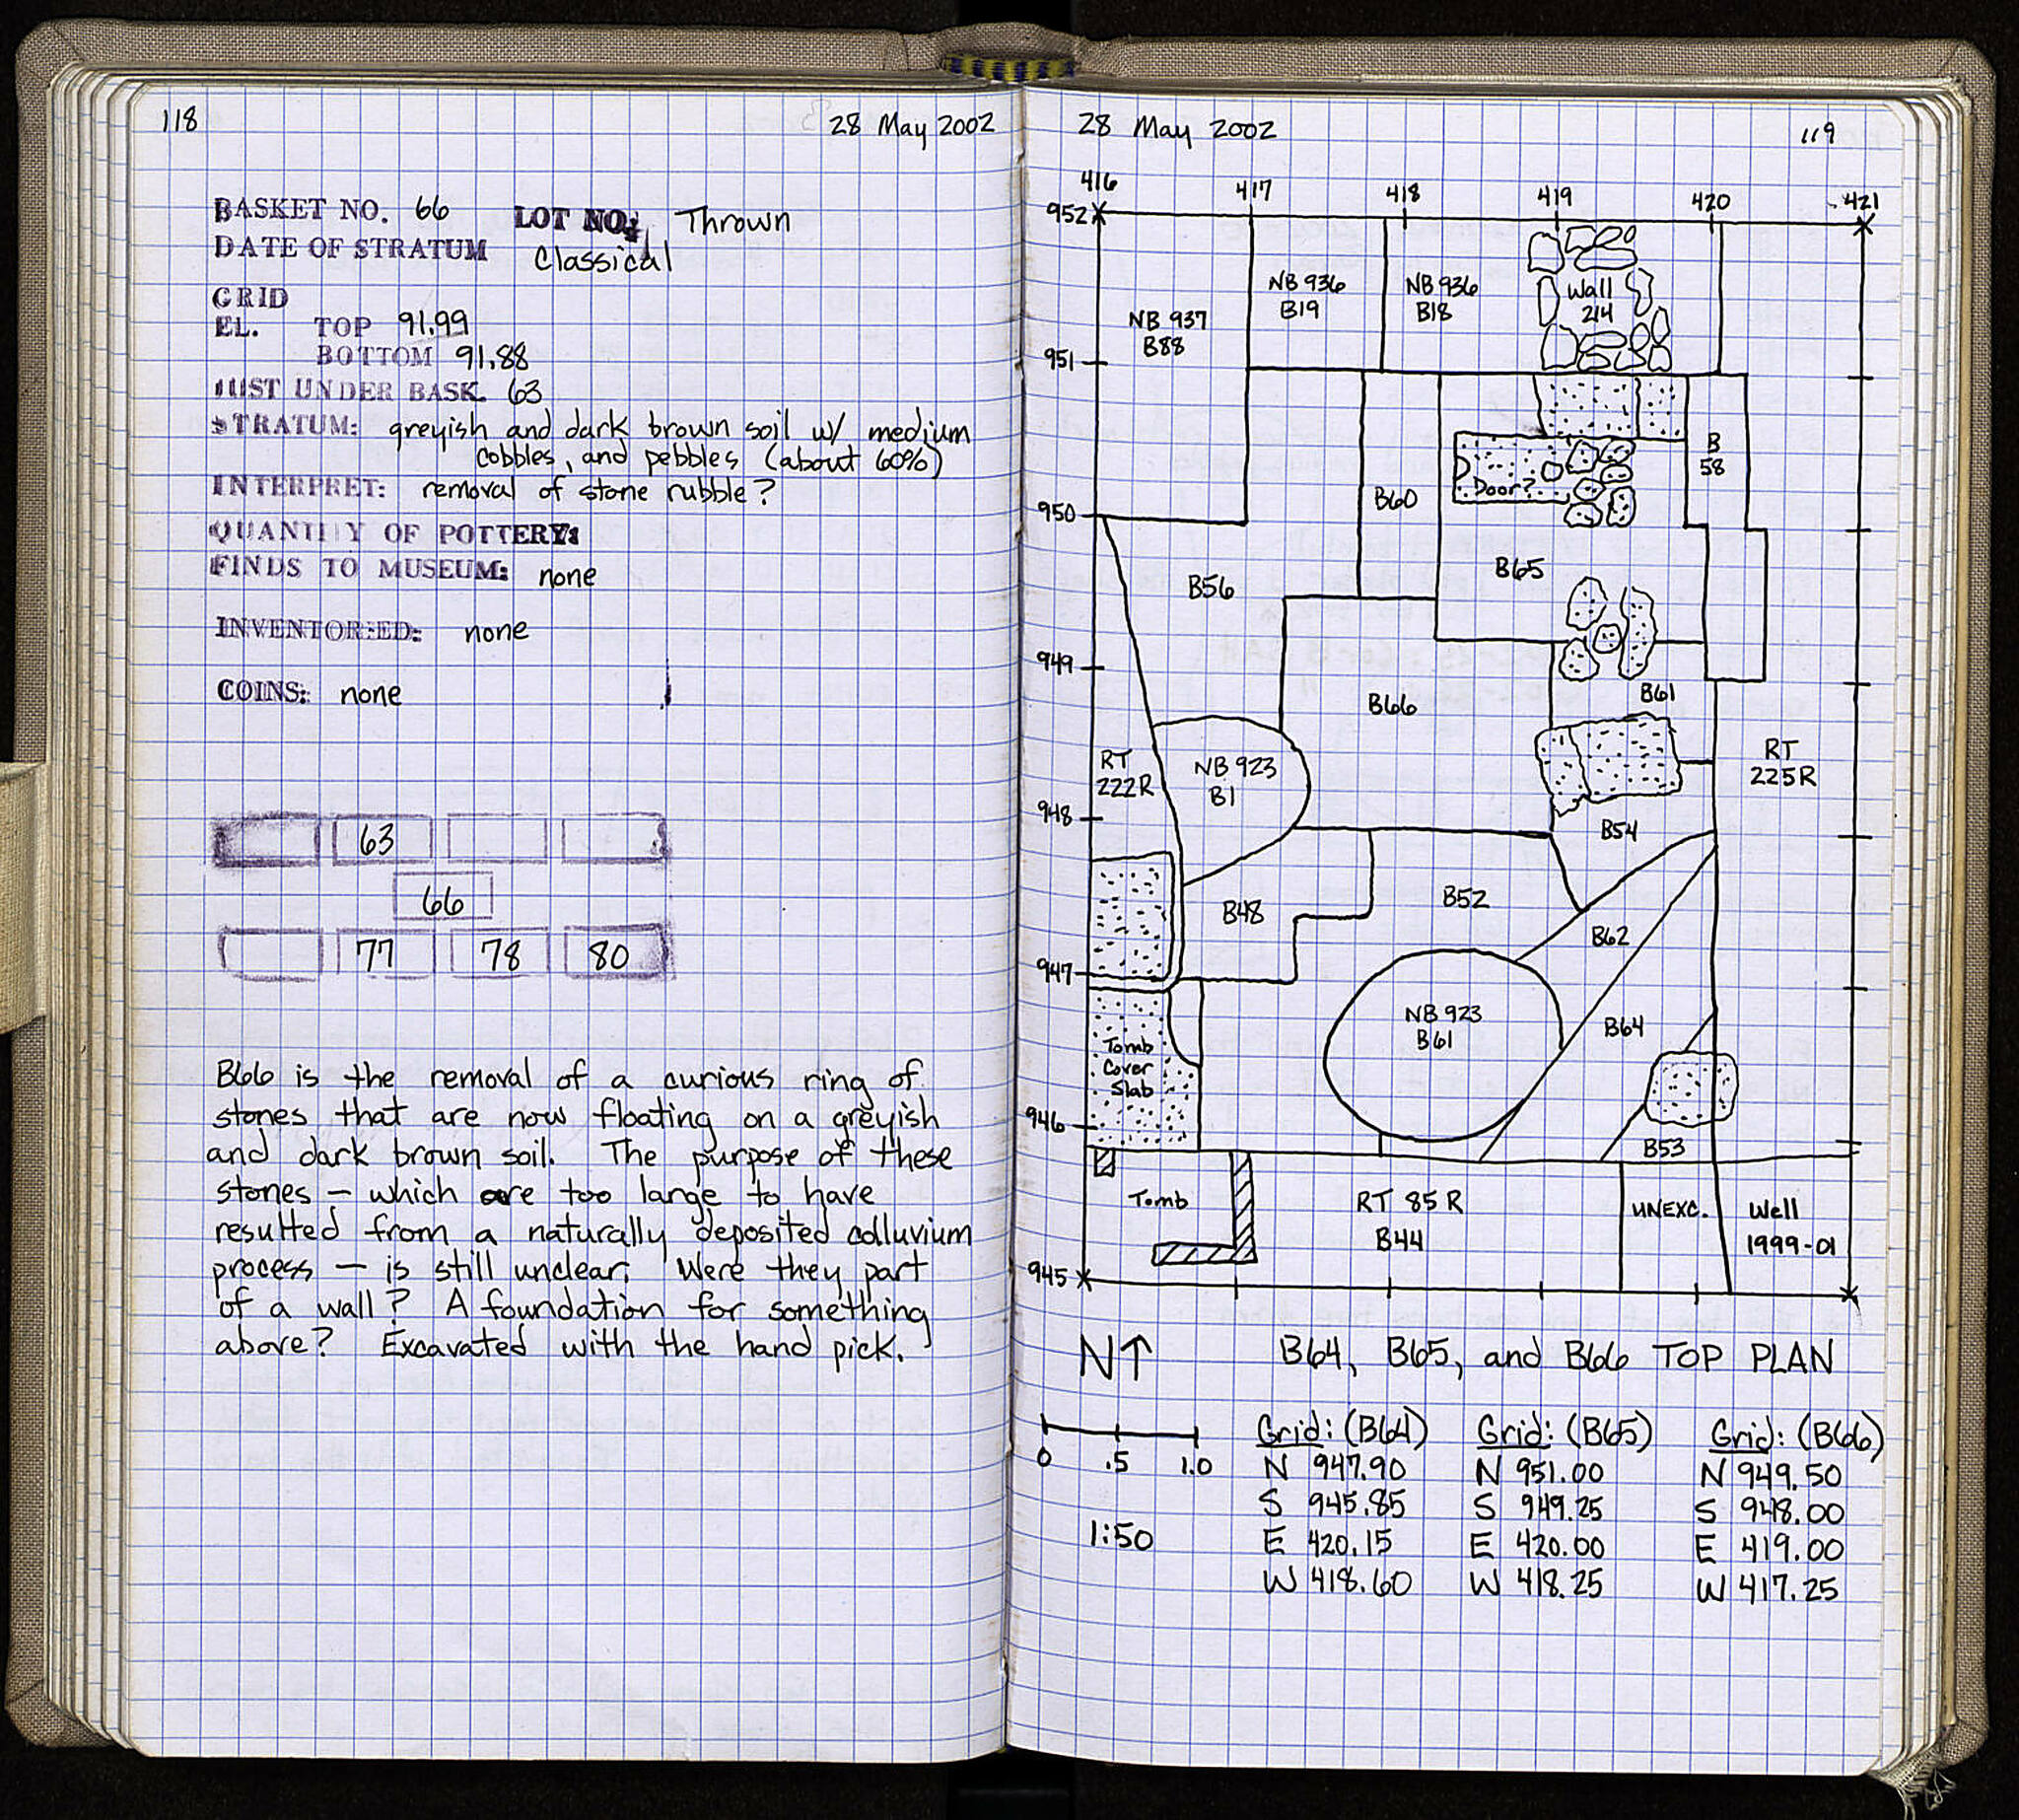 118
28 May 2002
BASKET NO. 66 LOT NO: Thrown
DATE OF STRATUM Classical
GRID
EL. TOP 91.99
BOTTOM 91.88
JUST UNDER BASK. 63
STRATUM: greyish and dark brown soil w/ medium
cobbles, and pebbles (about 60%)
INTERPRET: removal of stone rubble?
QUANTITY OF POTTERY:
FINDS TO MUSEUM: none
INVENTORIED: none
COINS: none
63
66
77 78 80
B66 is the removal of a curious ring of
stones that are now floating on a greyish
and dark brown soil. The purpose of these
stones – which are too large to have
resulted from a naturally deposited colluvium
process – is still unclear. Were they part
of a wall? A foundation for something
above? Excavated with the hand pick.
28 May 2002
119
416 417 418 419 420 421
952
NB 937
B88
NB 936
B19
NB 936
B18
Wall
214
951
B
58
Door?
B60
950
B65
B56
949
B61
B66
RT
222R
NB 923
B1
RT
225R
948
B54
B52
B48
B62
947
NB 923
B61
B64
Tomb
Cover
Slab
946
B53
Tomb
RT 85 R
B44
UNEXC.
Well
1999-01
945
N↑ B64, B65, and B66 TOP PLAN
0 .5 1.0
1:50
Grid: (B64) Grid: (B65) Grid: (B66)
N 947.90 N 951.00 N 949.50
S 945.85 S 949.25 S 948.00
E 420.15 E 420.00 E 419.00
W 418.60 W 418.25 W 417.25